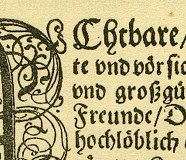 Achtbare/
te vnd vörsic
vnd großgü
Freunde/D
hochlöblich